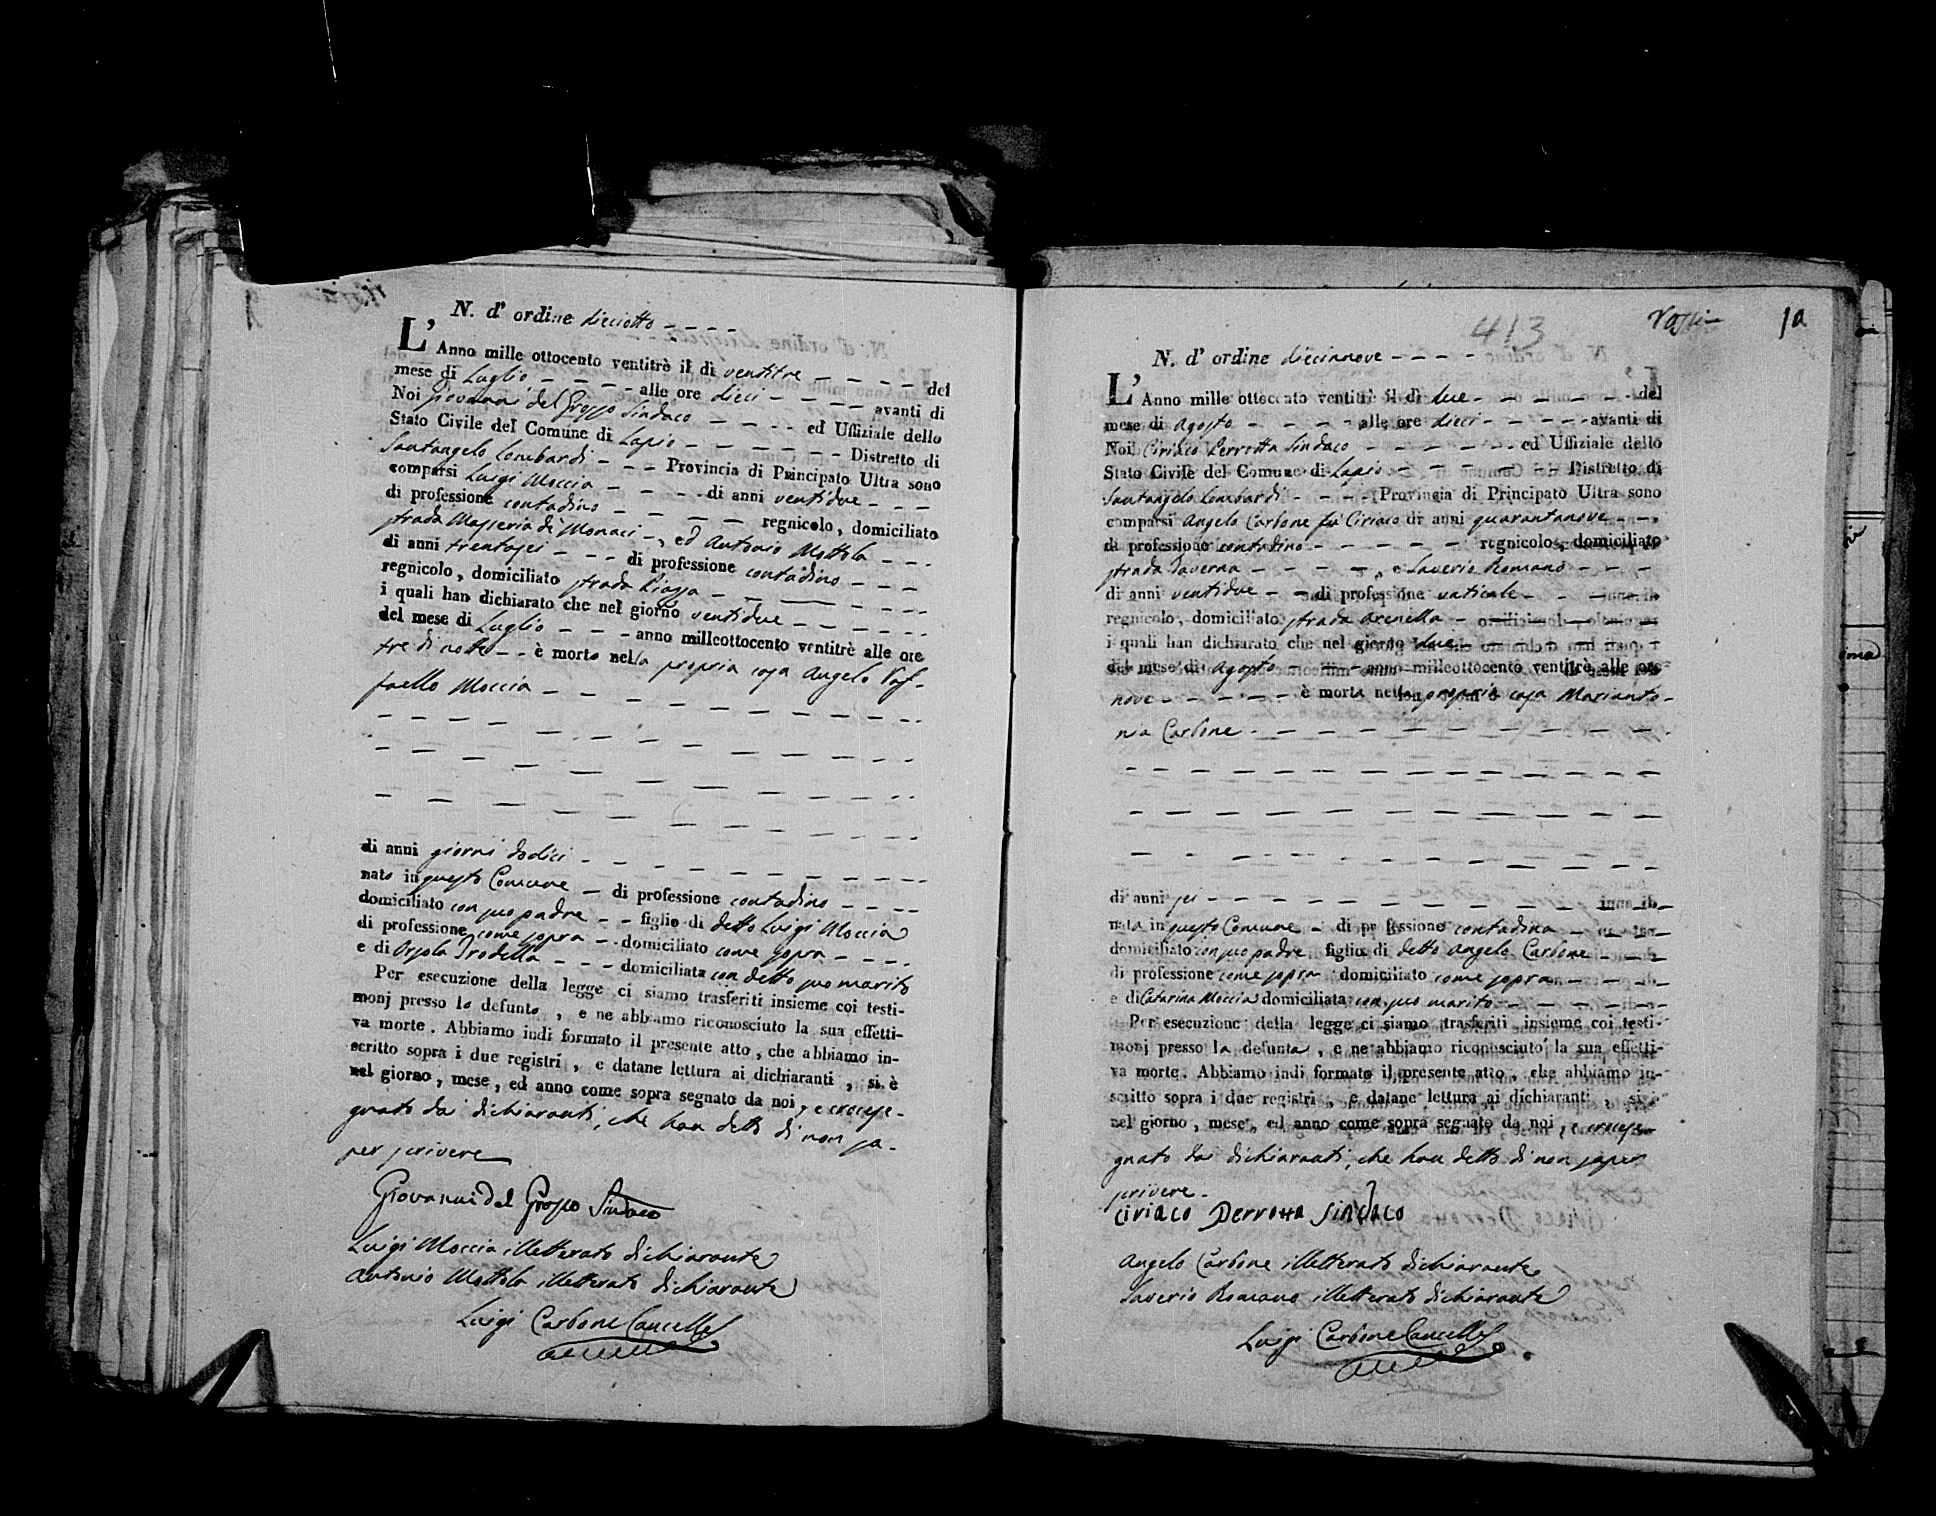 N. d' ordine dieciotto
L' Anno mille ottocento ventitrè il dì ventitre del
mese di Luglio alle ore dieci avanti di
Noi Giovanni del Grosso Sindaco ed Uffiziale dello
Stato Civile del Comune di Lapio Distretto di
Santangelo Lombardi Provincia di Principato Ultra sono
comparsi Luigi Moccia di anni ventidue
di professione contadino regnicolo, domiciliato
strada Masseria di Monaci, ed Antonio Mottola
di anni trentasei di professione contadino
regnicolo, domiciliato strada Piazza
i quali han dichiarato che nel giorno ventidue
del mese di Luglio anno milleottocento ventitrè alle ore
tre di notte è morto nella propria casa Angelo Raf-
faello Moccia
di anni giorni dodici
nato in questo Comune di professione contadino
domiciliato con suo padre figlio di detto Luigi Moccia
di professione come sopra domiciliato come sopra
e di Orsola Trodella domiciliata con detto suo marito
Per esecuzione della legge ci siamo trasferiti insieme coi testi-
monj presso lo defunto, e ne abbiamo riconosciuto la sua effetti-
va morte. Abbiamo indi formato il presente atto, che abbiamo in-
scritto sopra i due registri, e datane lettura ai dichiaranti, si è
nel giorno, mese, ed anno come sopra segnato da noi, e crocese-
gnato dai dichiaranti, che han detto di non sa-
per scrivere
Giovanni Del Grosso Sindaco
Luigi Moccia illetterato dichiarante
Antonio Mottola illetterato dichiarante
Luigi Carbone Cancelle
413
10
N. d' ordine diecinnove
L' Anno mille ottocento ventitrè il dì due del
mese di Agosto alle ore dieci avanti di
Noi Ciriaco Perrotta Sindaco ed Uffiziale dello
Stato Civile del Comune di Lapio Distretto di
Santangelo Lombardi Provincia di Principato Ultra sono
comparsi Angelo Carbone fu Ciriaco di anni quarantanove
di professione contadino regnicolo, domiciliato
strada Taverna, e Saverio Romano
di anni ventidue di professione vaticale
regnicolo, domiciliato strada Arenella
i quali han dichiarato che nel giorno due
del mese di Agosto anno milleottocento ventitrè alle ore
nove è morta nella propria casa Marianto-
nia Carbone
di anni sei
nata in questo Comune di professione contadina
domiciliato con suo padre figlia di detto Angelo Carbone
di professione come sopra domiciliato come sopra
e di Catarina Moccia domiciliata con suo marito
Per esecuzione della legge ci siamo trasferiti insieme coi testi-
monj presso la defunta, e ne abbiamo riconosciuto la sua effetti-
va morte. Abbiamo indi formato il presente atto, che abbiamo in-
scritto sopra i due registri, e datane lettura ai dichiaranti, si è
nel giorno, mese, ed anno come sopra segnato da noi, e crocese-
gnato dai dichiaranti, che han detto di non saper
scrivere
Ciriaco Perrotta Sindaco
Angelo Carbone illetterato dichiarante
Saverio Romano illetterato dichiarante
Luigi Carbone Cancelle